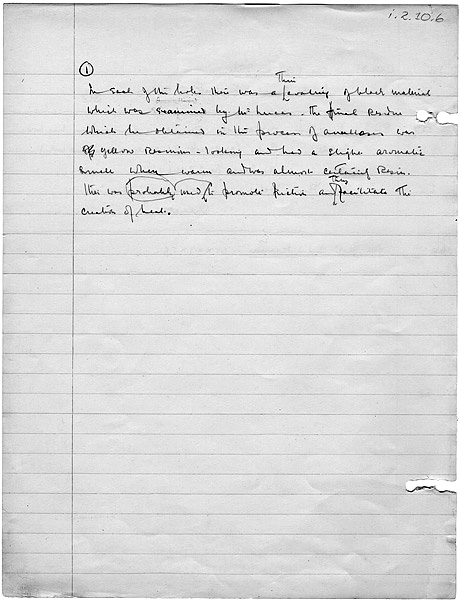 i.2.10.6
1
In each of the holes there was a thin coating of black material
which was examined by Mr Lucas. The final residue
which he obtained in the process of analysis was
yellow resinous-looking and had a slight aromatic
smell when warm and was almost certainly Resin.
this was probably used to promote friction and thus facilitate the
creation of heat.